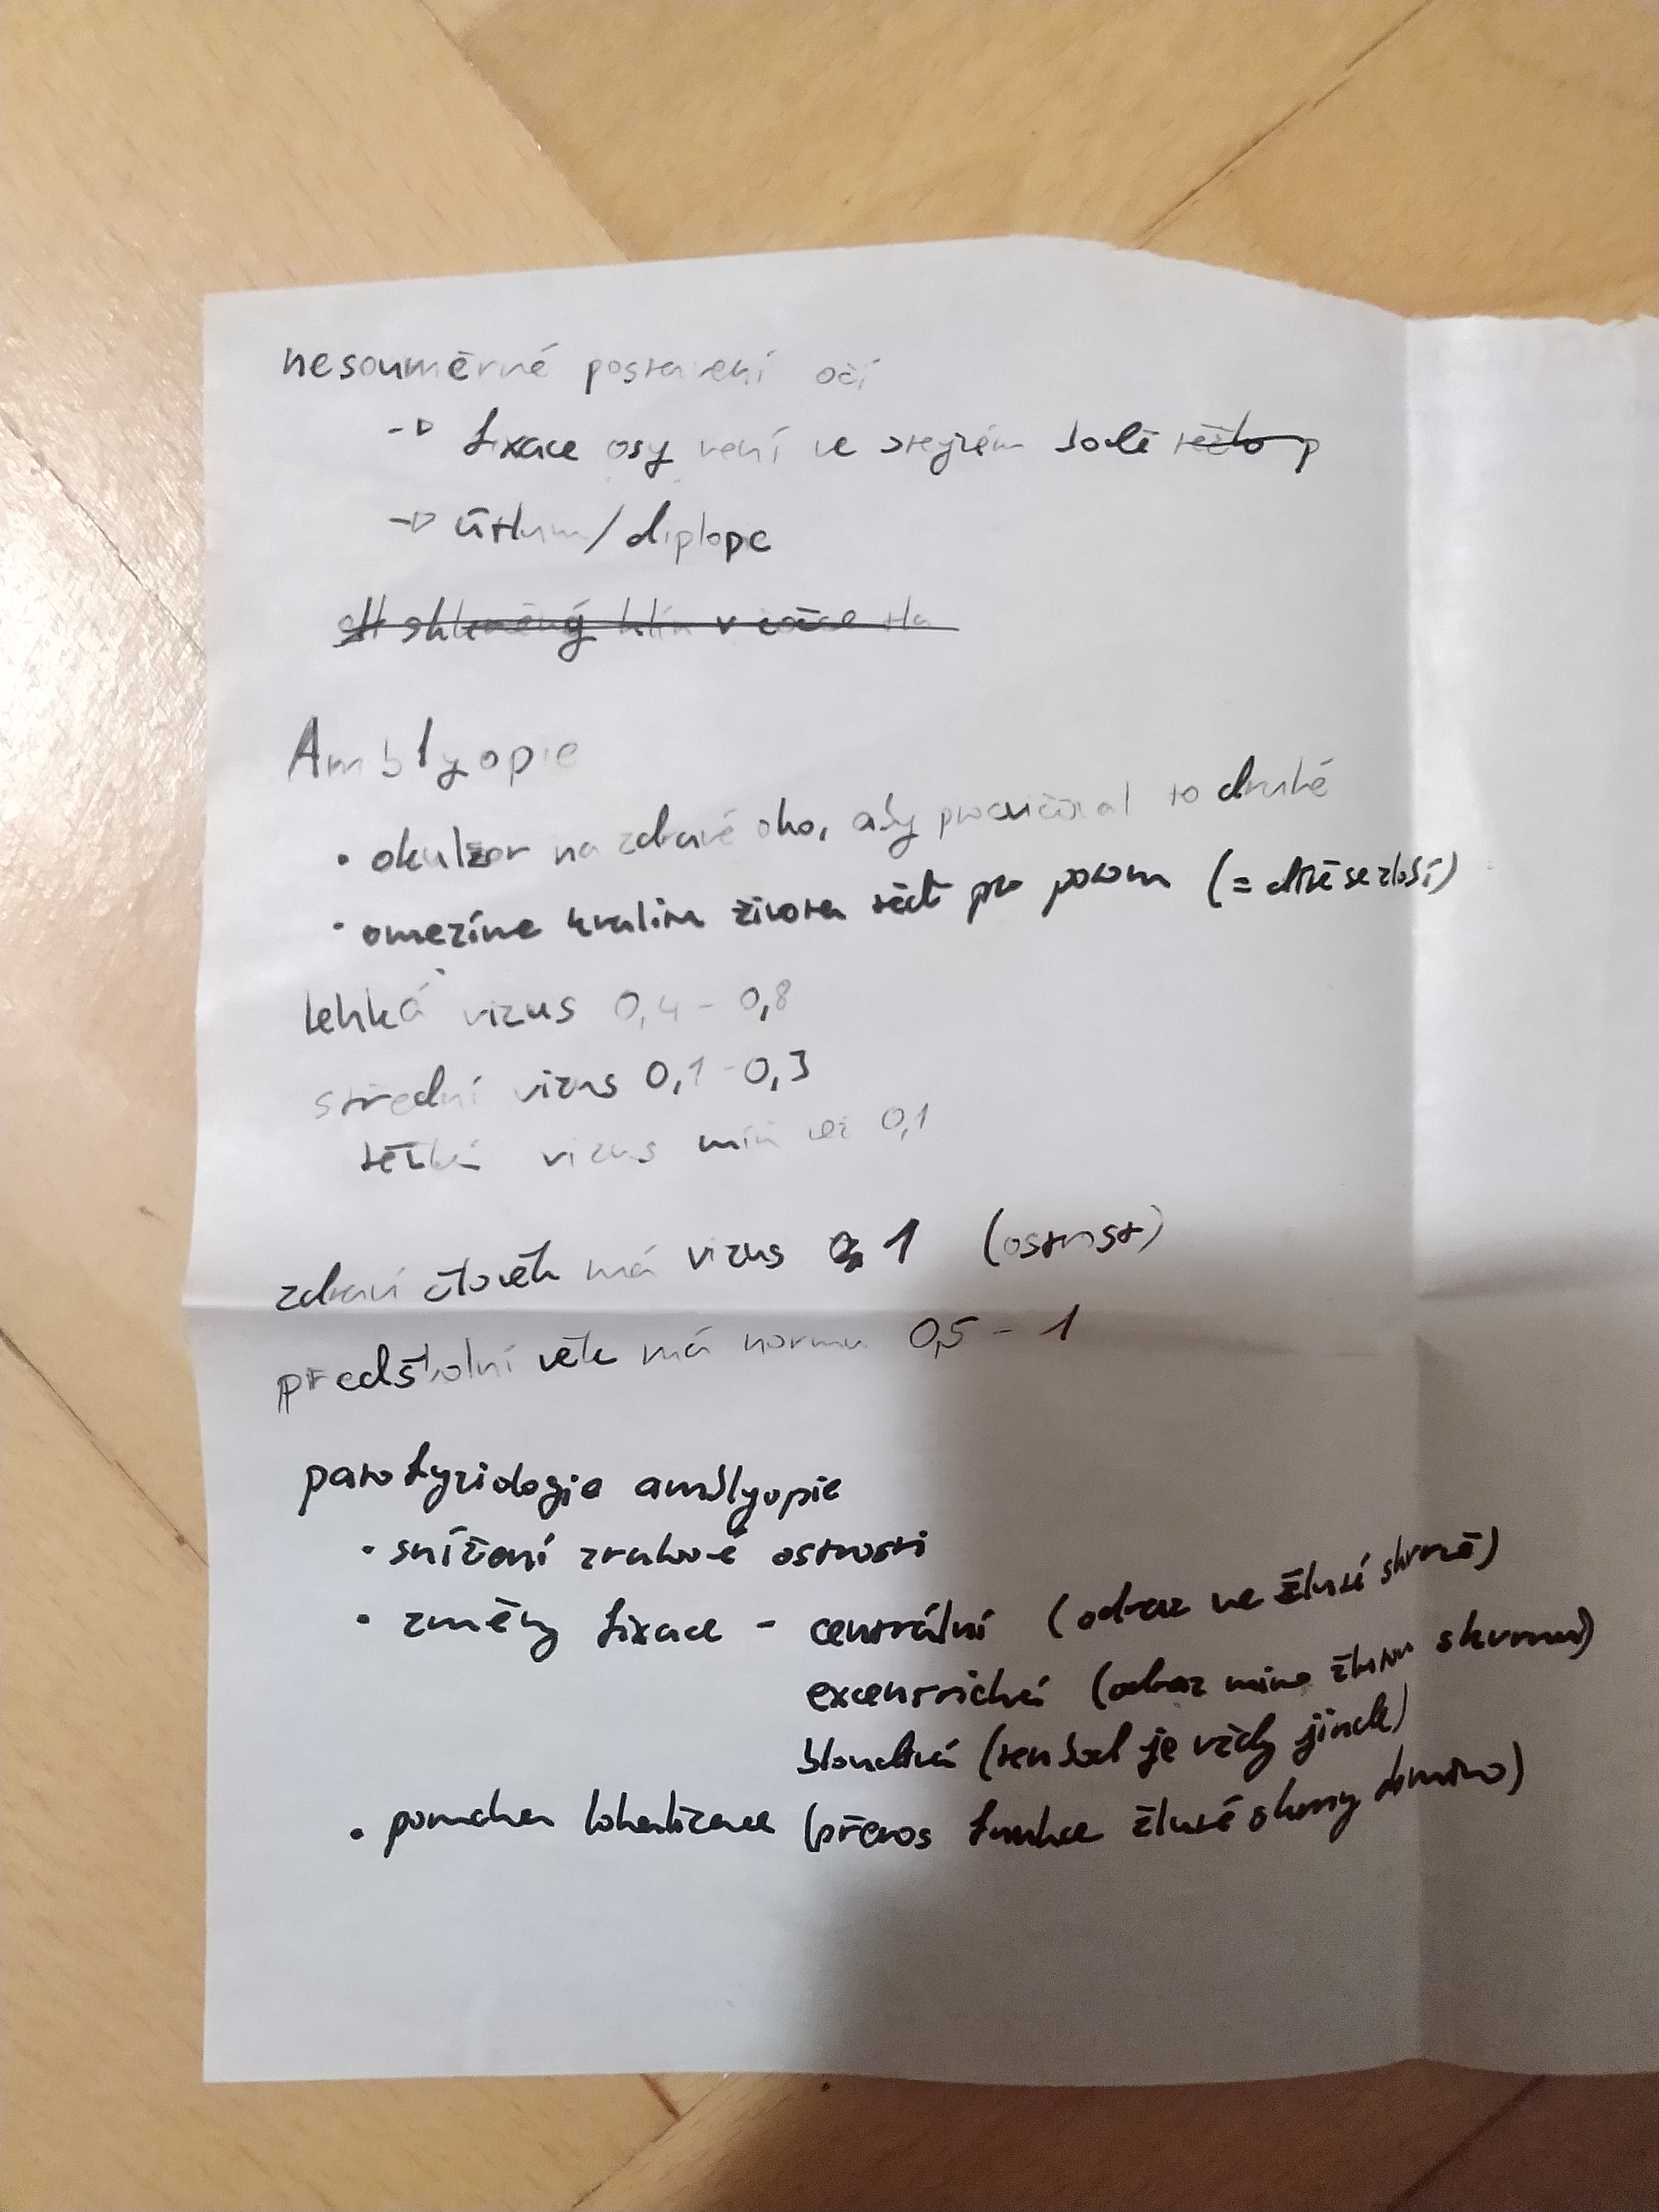 nesouměrné postavení očí
→ fixace osy není ve stejném bodě
→ útlum/diplope
skleněný klín v
Amblyopie
• okluzor na zdravé oko, aby procvičoval to druhé
• omezíme kvalitu života teď pro potom (= dítě se zlobí)
lehká vizus 0,4 - 0,8
střední vizus 0,1 - 0,3
těžká vizus míň než 0,1
zdraví člověk má vizus 1 (ostrost)
předškolní věk má normu 0,5 - 1
patofyziologie amblyopie
• snížení zrakové ostrosti
• změny fixace - centrální (odraz ve žluté skvrně)
excentrická (odraz mimo žlutou skvrnu)
bloudivá (ten bod je vždy jinde)
• porucha lokalizace (přenos funkce žluté skvrny)